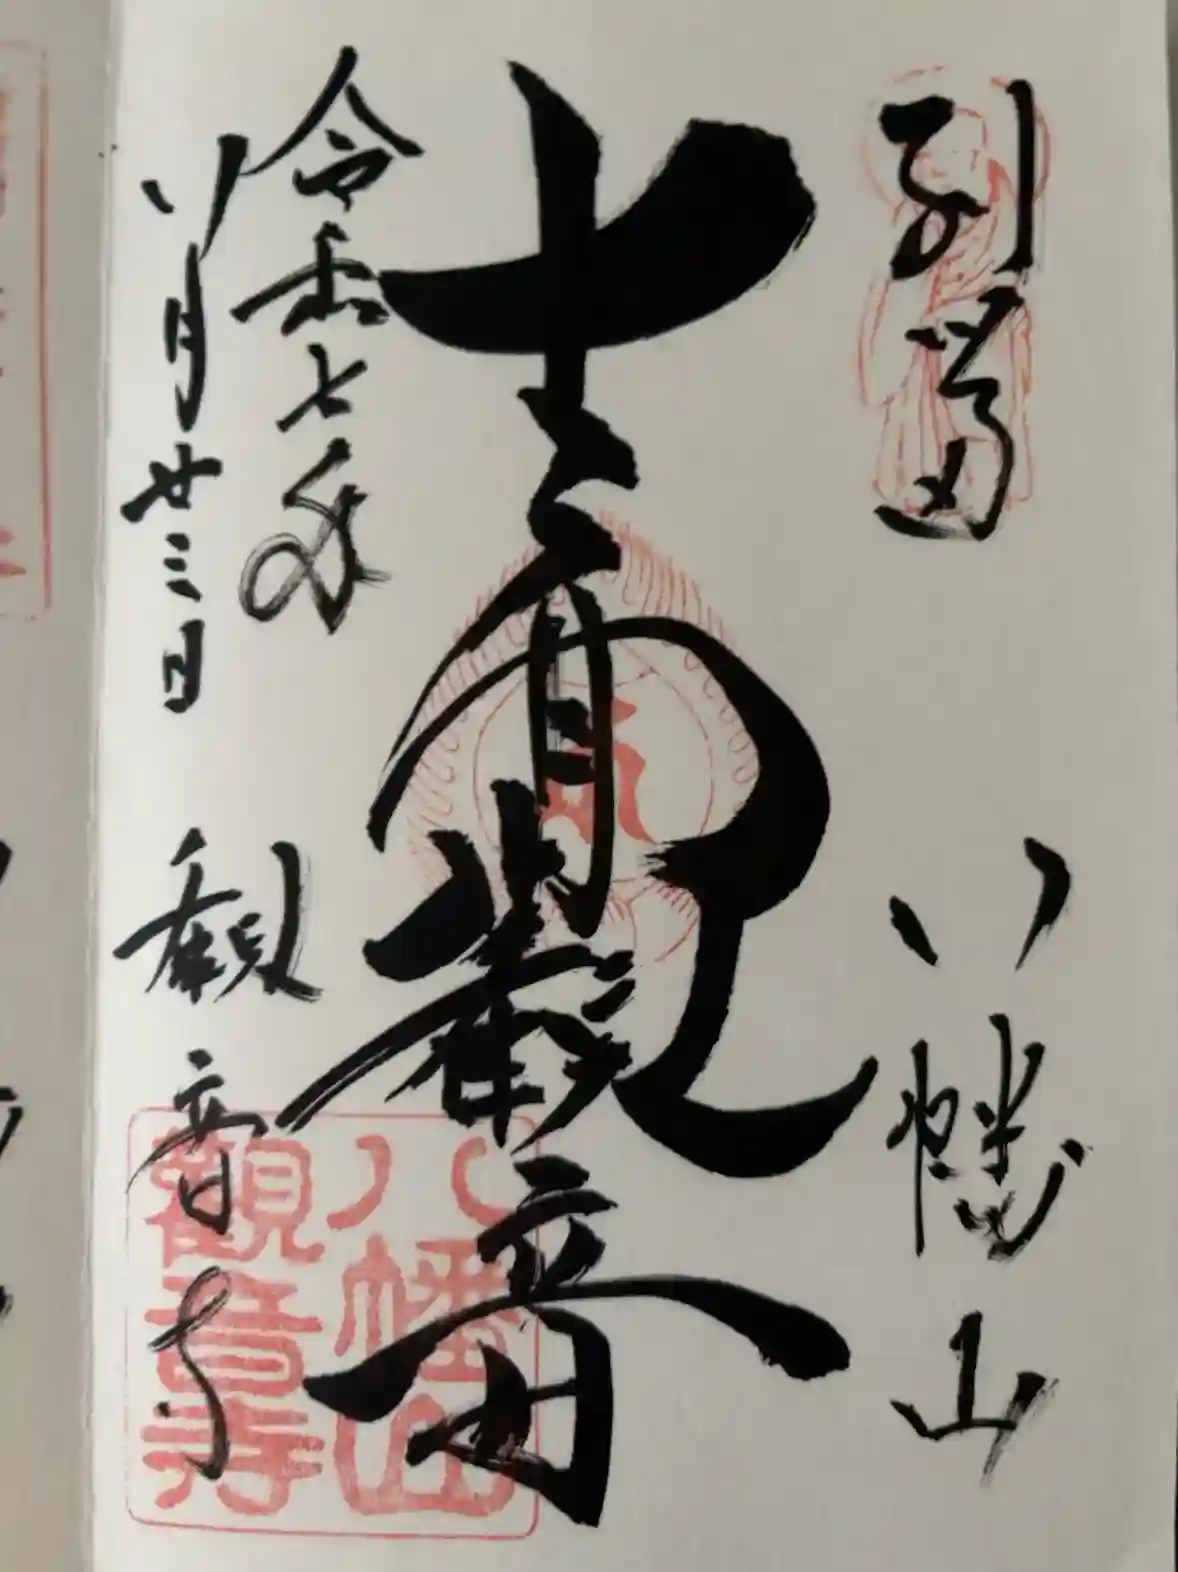 八幡山
十一面觀音
令和七年
八月廿三日
観音寺
八幡山
觀音寺